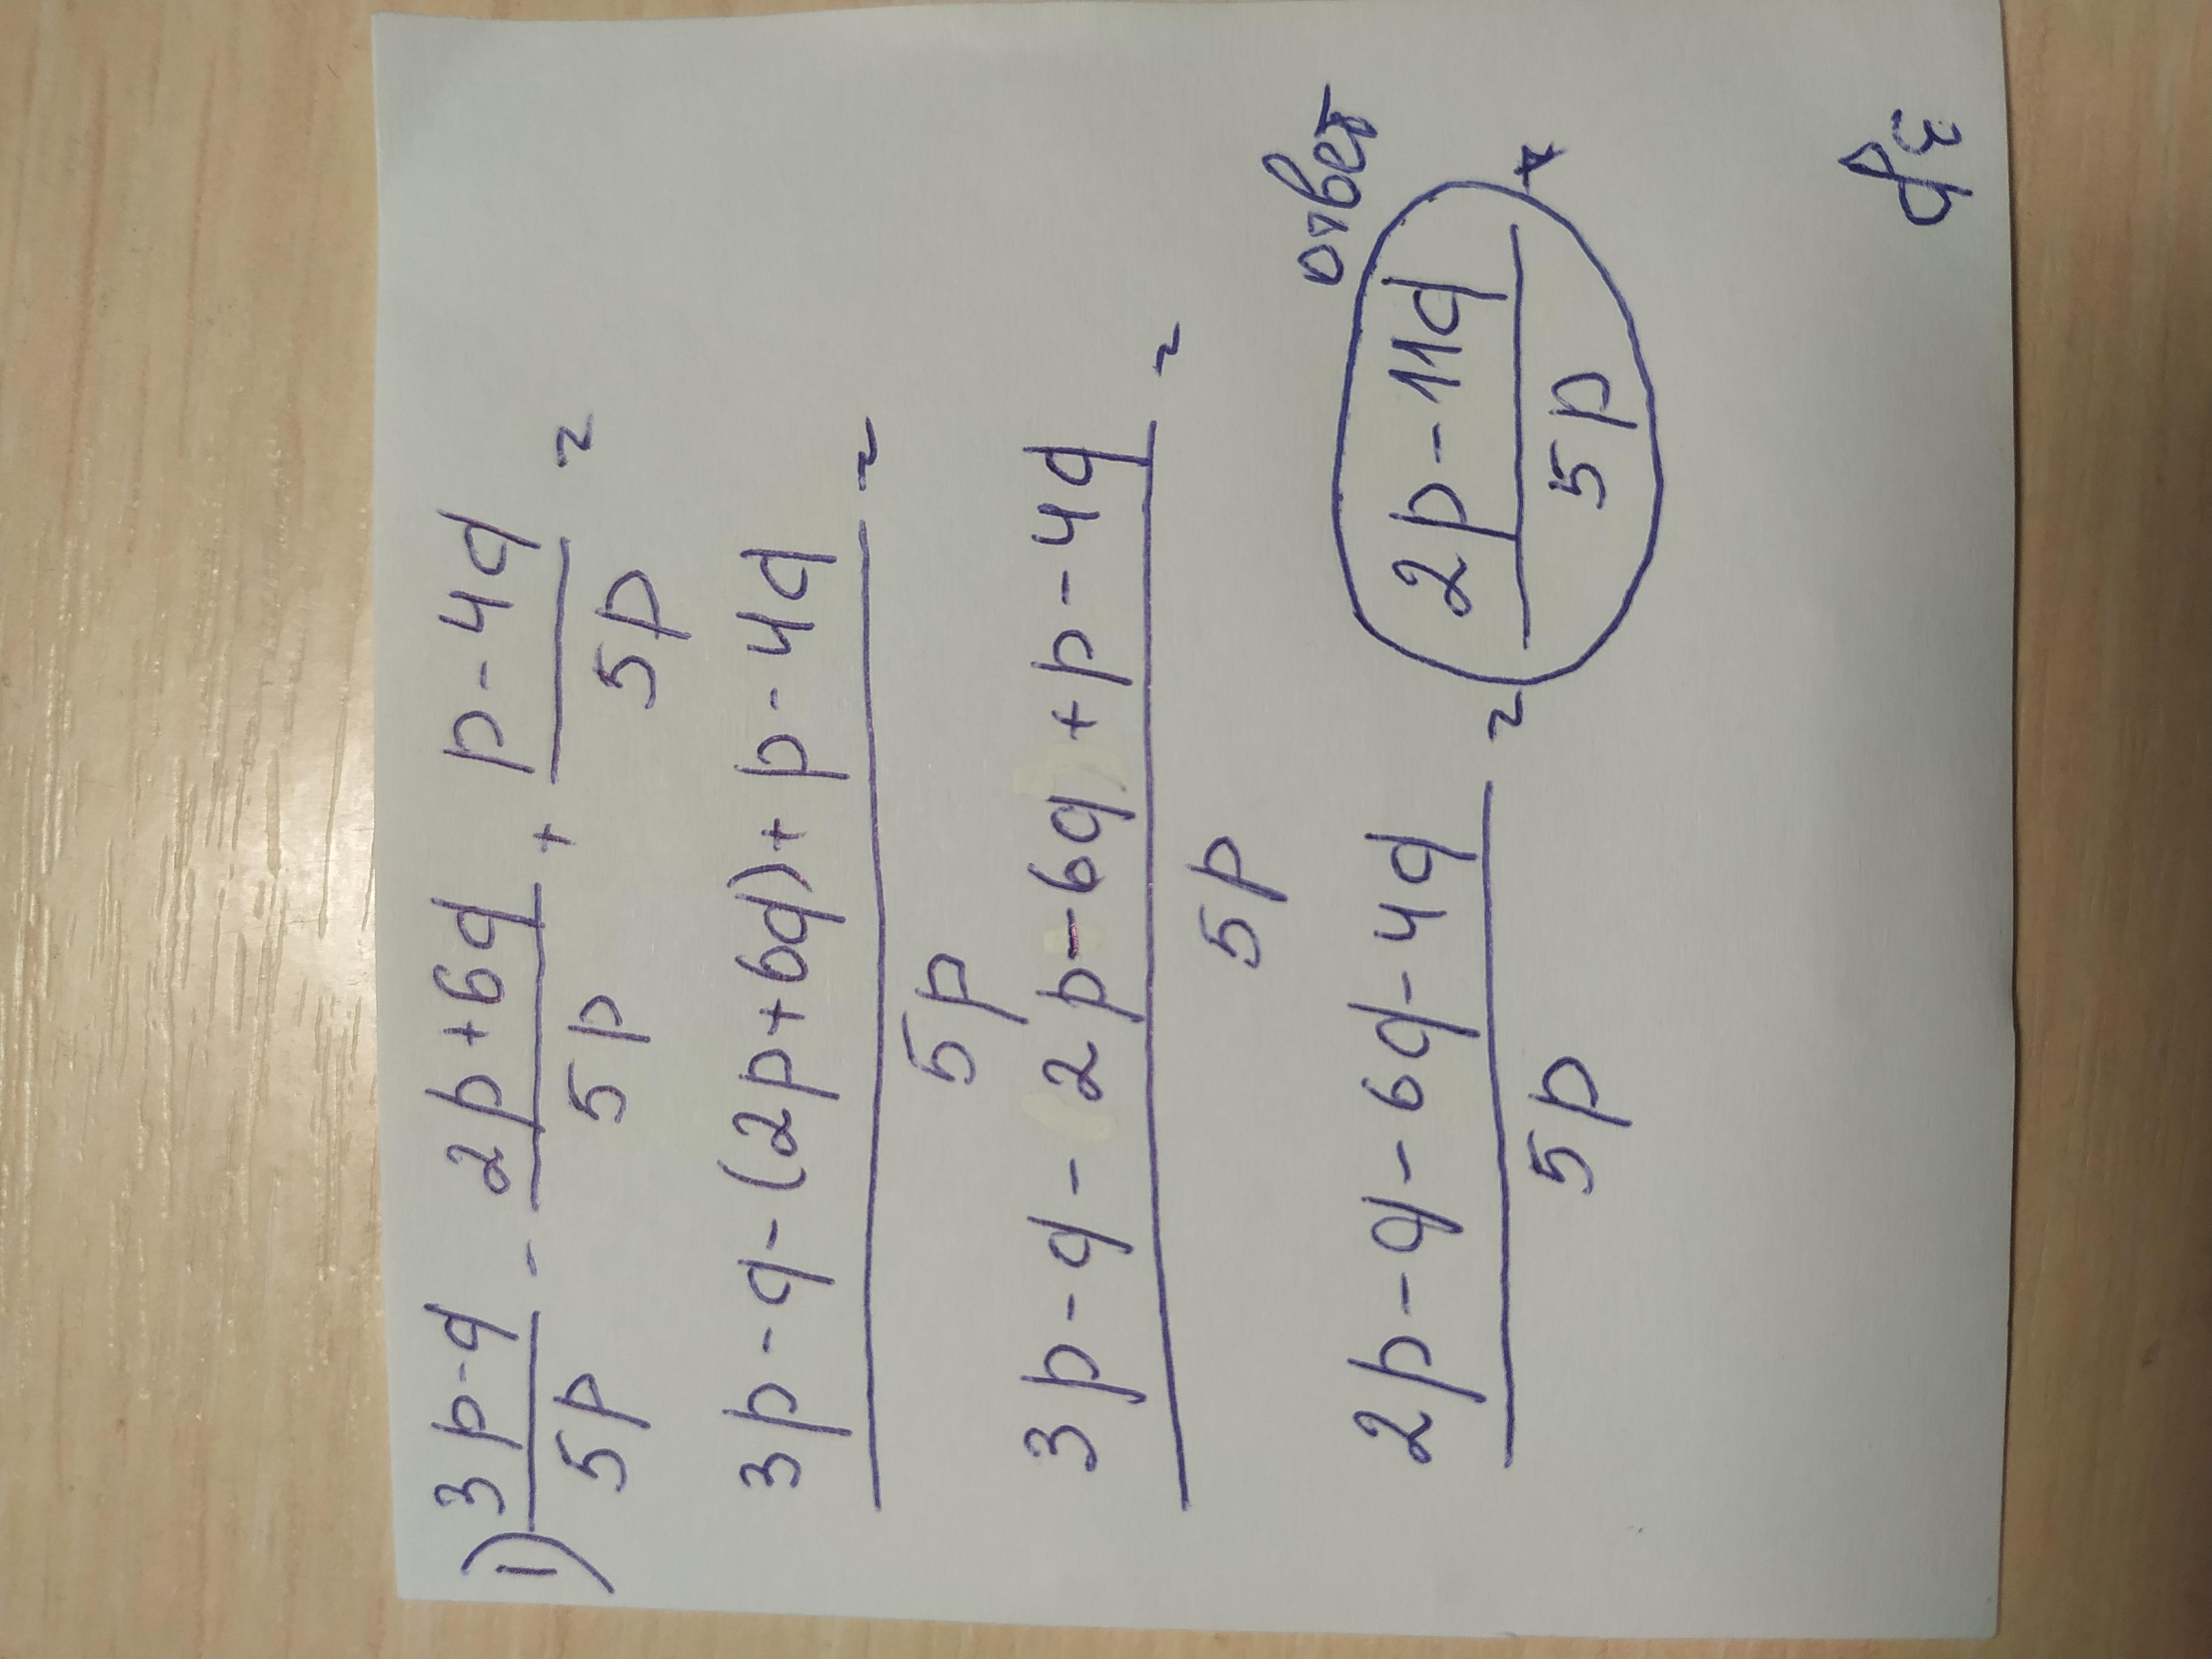 1) (3p-q)/5p - (2p+6q)/5p + (p-4q)/5p =
(3p-q-(2p+6q)+p-4q)/5p =
(3p-q-2p-6q+p-4q)/5p =
ответ
(2p-q-6q-4q)/5p = (2p-11q)/5p *